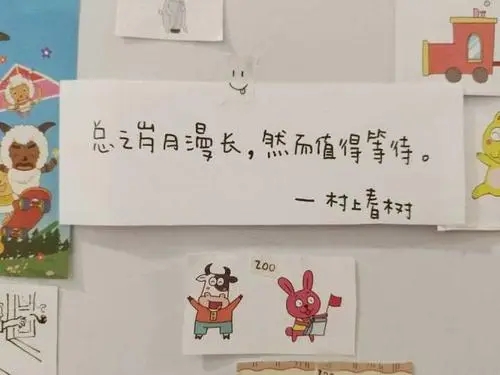 总之岁月漫长，然而值得等待。
—村上春树
200